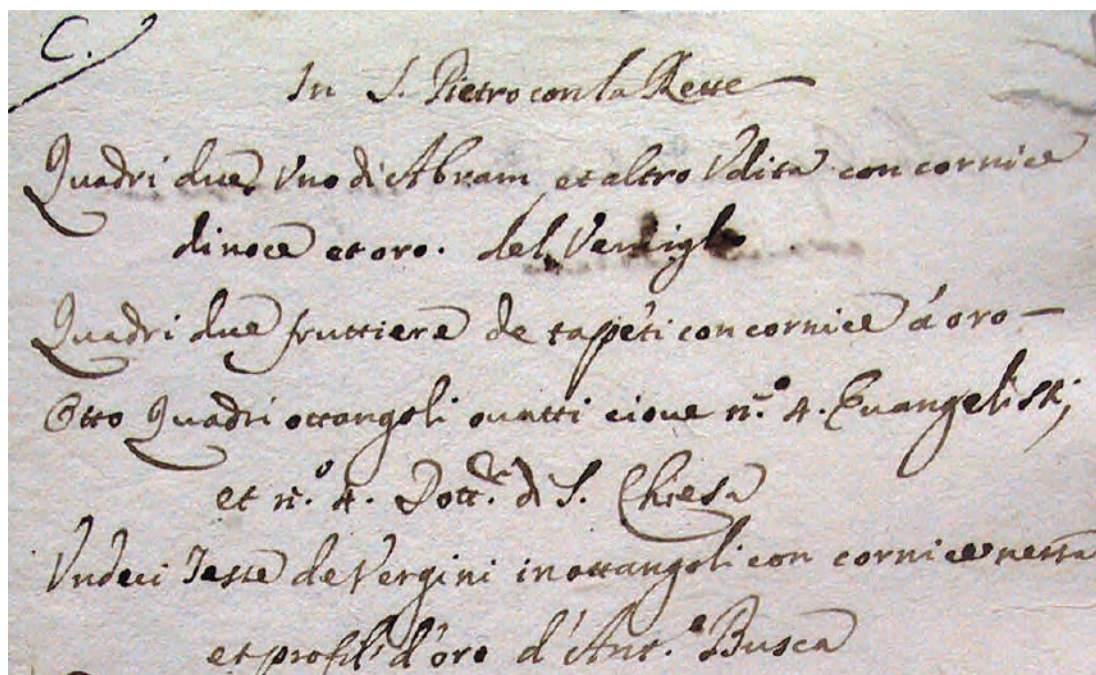 C.
In S. Pietro con la Rette
Quadri due Uno di Abram et altro Udita con cornice
di noce et oro. del Vermiglio
Quadri due fruttiere de tapéti con cornice á oro
Otto Quadri ottangoli ouatti cioue n.º 4. Euangelisti,
et n.º 4. Dott.ri di S. Chiesa
Undeci Teste de Vergini in ottangoli con cornice nerra
et profili d'oro d'Ant.º Busca